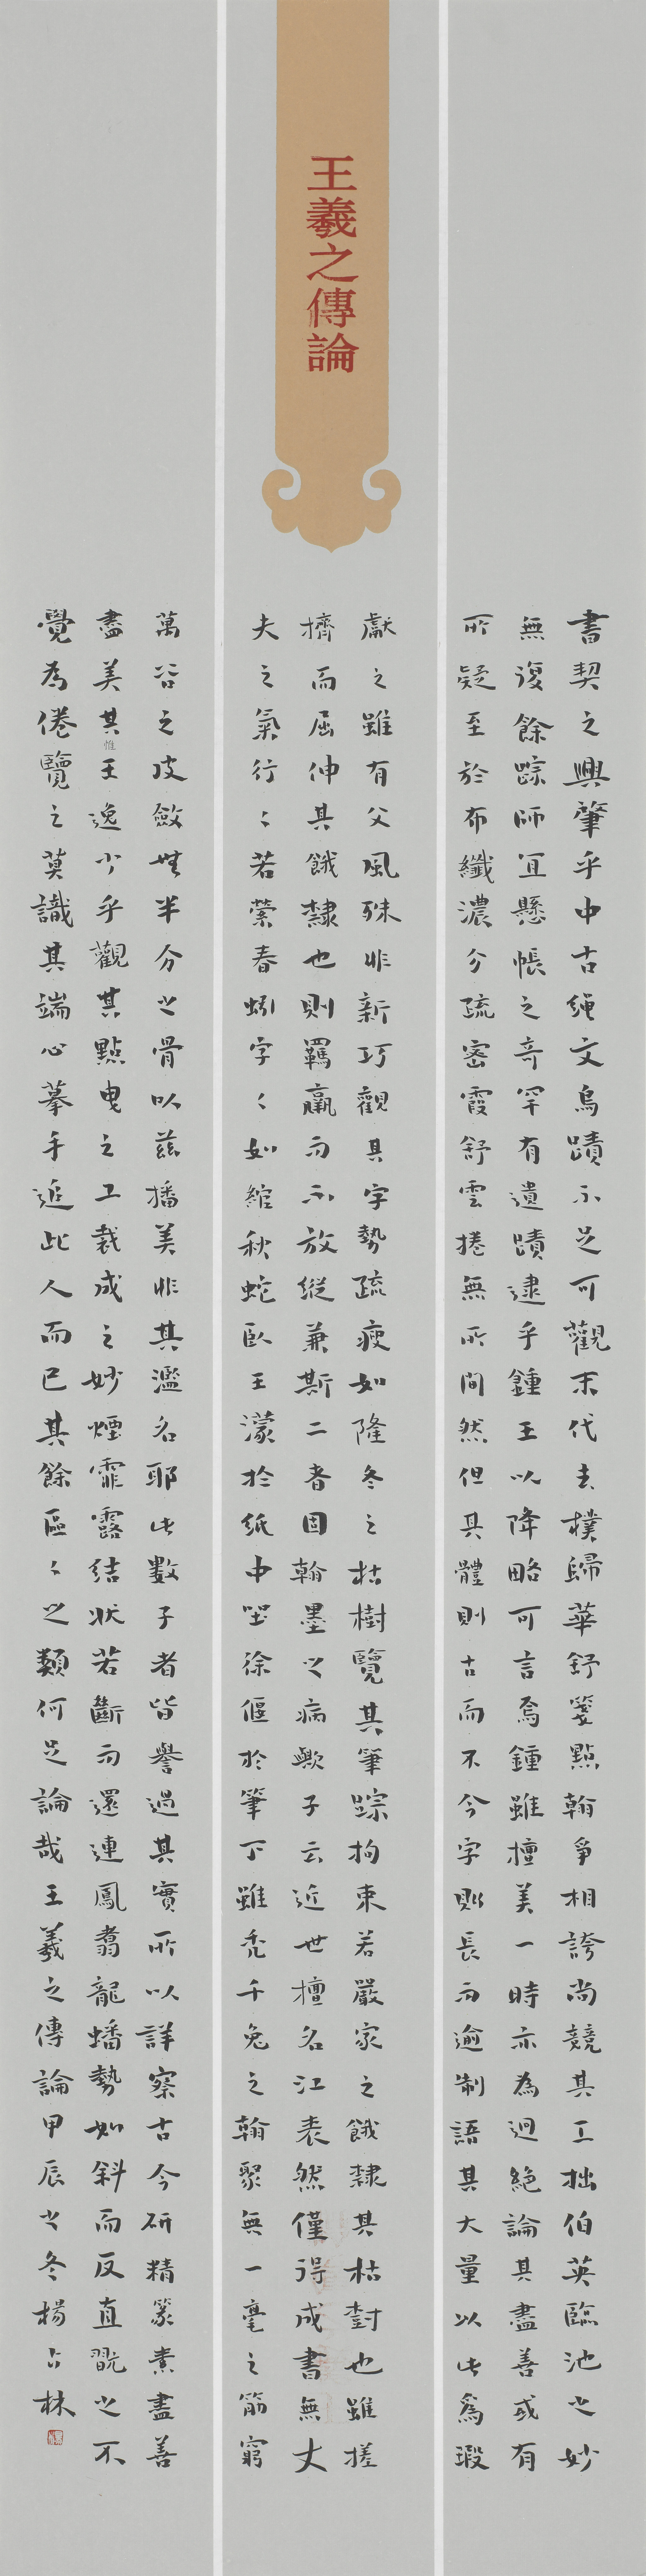 王羲之傳論
書契之興肇乎中古繩文鳥蹟不足可觀末代去樸歸華舒箋點翰爭相誇尚競其工拙伯英臨池之妙
無復餘踪師宜懸帳之奇罕有遺蹟逮乎鍾王以降略可言焉鍾雖擅美一時亦為迥絕論其盡善或有
所疑至於布纖濃分疏密霞舒雲捲無所間然但其體則古而不今字則長而逾制語其大量以此為瑕
獻之雖有父風殊非新巧觀其字勢疏瘦如隆冬之枯樹覽其筆踪拘束若嚴家之餓隸其枯樹也雖搓
擠而屈伸其餓隸也則羈羸而不放縱兼斯二者固翰墨之病歟子云近世擅名江表然僅得成書無丈
夫之氣行〻若縈春蚓字〻如綰秋蛇臥王濛於紙中坐徐偃於筆下雖禿千兔之翰聚無一毫之筋窮
萬谷之皮斂無半分之骨以茲播美非其濫名耶此數子者皆譽過其實所以詳察古今研精篆素盡善
盡美其惟王逸少乎觀其點曳之工裁成之妙煙霏露結狀若斷而還連鳳翥龍蟠勢如斜而反直翫之不
覺為倦覽之莫識其端心摹手追此人而已其餘區〻之類何足論哉王羲之傳論甲辰之冬楊占林